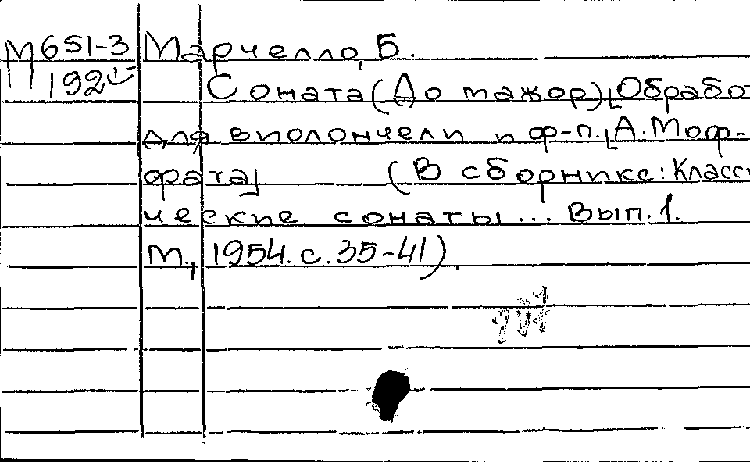 М651-3 Марчелло, Б.
192 Соната (До мажор). [Обрабо
для виолончели и ф-п. [А. Моф-
фата] (В сборнике: Класси
ческие сонаты... Вып. 1.
М., 1954. с. 35-41).